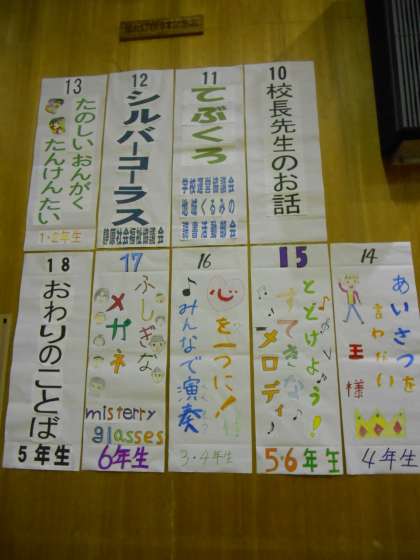 10
校長先生のお話
11
てぶくろ
学校運営協議会
地域くるみの
読書活動部会
12
シルバーコーラス
静原社会福祉協議会
13
たのしいおんがく
たんけんたい
1・2年生
14
あいさつを
言わない
王様
4年生
15
とどけよう!
すてきな
メロディ
5・6年生
16
心を一つに!
みんなで演奏
3・4年生
17
ふしぎな
メガネ
misterry
glasses
6年生
18
おわりのことば
5年生